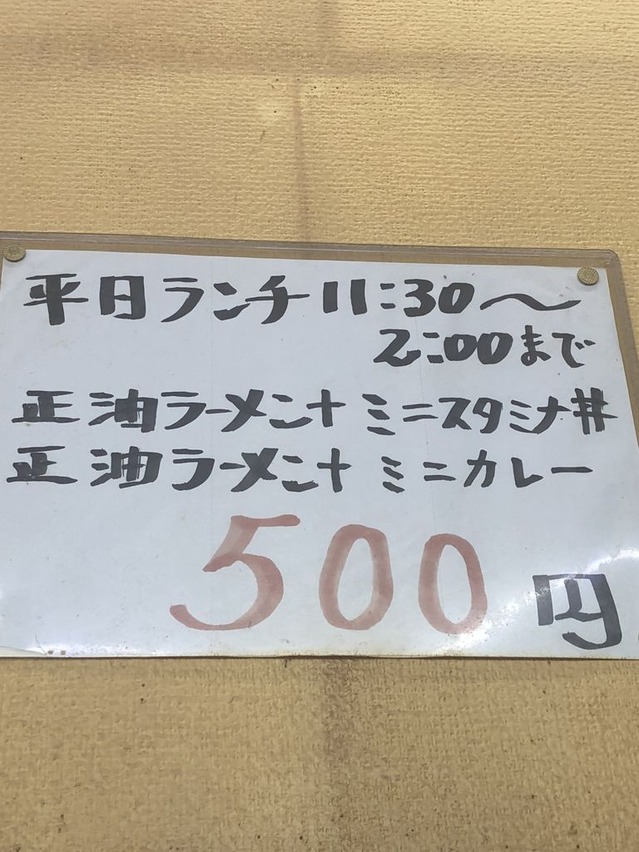 平日ランチ11:30〜
2:00まで
正油ラーメン+ミニスタミナ丼
正油ラーメン+ミニカレー
500円